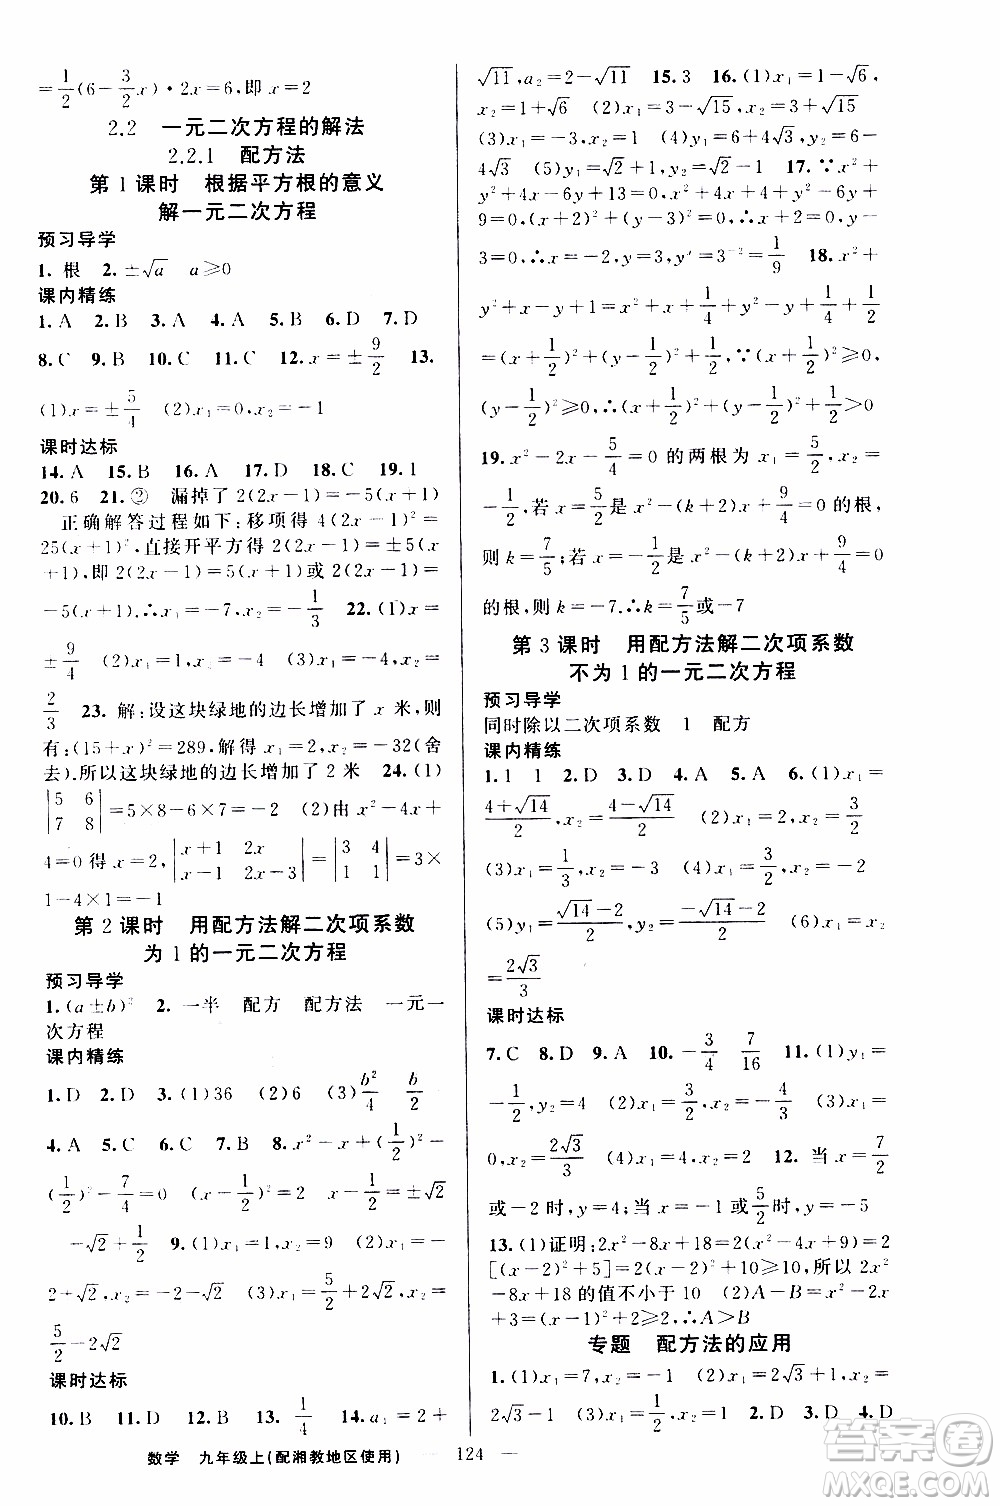 =1/2(6-3/2x)·2x=6,即 x=2
2.2 一元二次方程的解法
2.2.1 配方法
第 1 课时 根据平方根的意义
解一元二次方程
预习导学
1. 根 2. ±√a a≥0
课内精练
1. A 2. B 3. A 4. A 5. B 6. D 7. D
8. C 9. B 10. C 11. C 12. x=±9/2 13.
(1)x=±5/4 (2)x₁=0,x₂=-1
课时达标
14. A 15. B 16. A 17. D 18. C 19. 1
20. 6 21. ② 漏掉了 2(2x-1)=-5(x+1)
正确解答过程如下:移项得 4(2x-1)²=
25(x+1)²,直接开平方得 2(2x-1)=±5(x
+1),即 2(2x-1)=5(x+1)或 2(2x-1)=
-5(x+1).∴x₁=-7,x₂=-1/3 22. (1)x=
±9/4 (2)x₁=-1,x₂=-4 (3)x₁=-4,x₂=
2/3 23. 解:设这块绿地的边长增加了 x 米,则
有:(15+x)²=289,解得 x₁=2,x₂=-32(舍
去).所以这块绿地的边长增加了 2 米 24. (1)
|5 6; 7 8|=5×8-6×7=-2 (2)由 x²-4x+
4=0 得 x=2,|x+1 2x; x-1 2x-3|=|3 4; 1 1|=3×
1-4×1=-1
第 2 课时 用配方法解二次项系数
为 1 的一元二次方程
预习导学
1. (a±b)² 2. 一半 配方 配方法 一元一
次方程
课内精练
1. D 2. D 3. (1)36 (2)6 (3)b²/4 b/2
4. A 5. C 6. C 7. B 8. x²-x+(1/2)²-
(1/2)²-7/4=0 (x-1/2)²=2 x-1/2=±√2
-√2+1/2 9. (1)x₁=3,x₂=-1 (2)x₁=
2+√2,x₂=2-√2 (3)x₁=5/2+2√2,x₂=
5/2-2√2
课时达标
10. B 11. B 12. A 13. 1/4 14. a₁=2+
√11,a₂=2-√11 15. 3 16. (1)x₁=1-√6,
x₂=1+√6 (2)x₁=3-√15,x₂=3+√15
(3)x₁=-1,x₂=3 (4)x₁=6+4√3,x₂=6-
4√3 (5)x₁=√2-1,x₂=-√2-1 17. ∵x²+
y²+z²-2x+6y-6z+19=0,x²-2x+1+y²+6y+
9=0,(x-1)²+(y+3)²=0,∴x-1=0,y+
3=0,∴x=1,y=-3,∴xʸ=3⁻²=1/9 18. x²+
y²+x-y+1=x²+x+1/4+y²-y+1/4+1/2
=(x+1/2)²+(y-1/2)²+1/2,∵(x+1/2)²≥0,
(y-1/2)²≥0,∴(x+1/2)²+(y-1/2)²+1/2>0
19. x²-2x-5/4=0 的两根为 x₁=5/2,x₂=
-1/2,若 x=5/2是 x²-(k+2)x+9/4=0 的根,
则 k=7/5;若 x=-1/2是 x²-(k+2)x+9/4=0
的根,则 k=-7.∴k=7/5或-7
第 3 课时 用配方法解二次项系数
不为 1 的一元二次方程
预习导学
同时除以二次项系数 1 配方
课内精练
1. 1 1 2. D 3. D 4. D 5. A 6. (1)x₁=
(4+√14)/2,x₂=(4-√14)/2 (2)x₁=2,x₂=-1
(3)x₁=1/2,x₂=-3 (4)x₁=1/2,x₂=-1
(5)y₁=(√14-2)/2,y₂=(-√14-2)/2 (6)x₁=x₂
=2√3/3
课时达标
7. C 8. D 9. A 10. -3/4 7/16 11. (1)y₁=
-1/2,y₂=4 (2)x₁=3/2,x₂=-1/2 (3)x₁=
0,x₂=2√3/3 (4)x₁=4,x₂=2 12. 当 x=7/2
或-2 时,y=4;当 x=1 或 x=5/2时,y=-5
13. (1)证明:2x²-8x+18=2(x²-4x+9)=2
[(x-2)²+5]=2(x-2)²+10≥10,所以 2x²
-8x+18 的值不小于 10 (2)A-B=x²-2x
+3=(x-1)²+2≥2,∴A>B
专题 配方法的应用
1. (1)x₁=7,x₂=-1 (2)x₁=2√3+1,x₂=
2√3-1 (3)x₁=x₂=√2 2. B 3. B 4. D
数学 九年级上(配湘教地区使用) — 124 —
答案圈
MXQE.COM